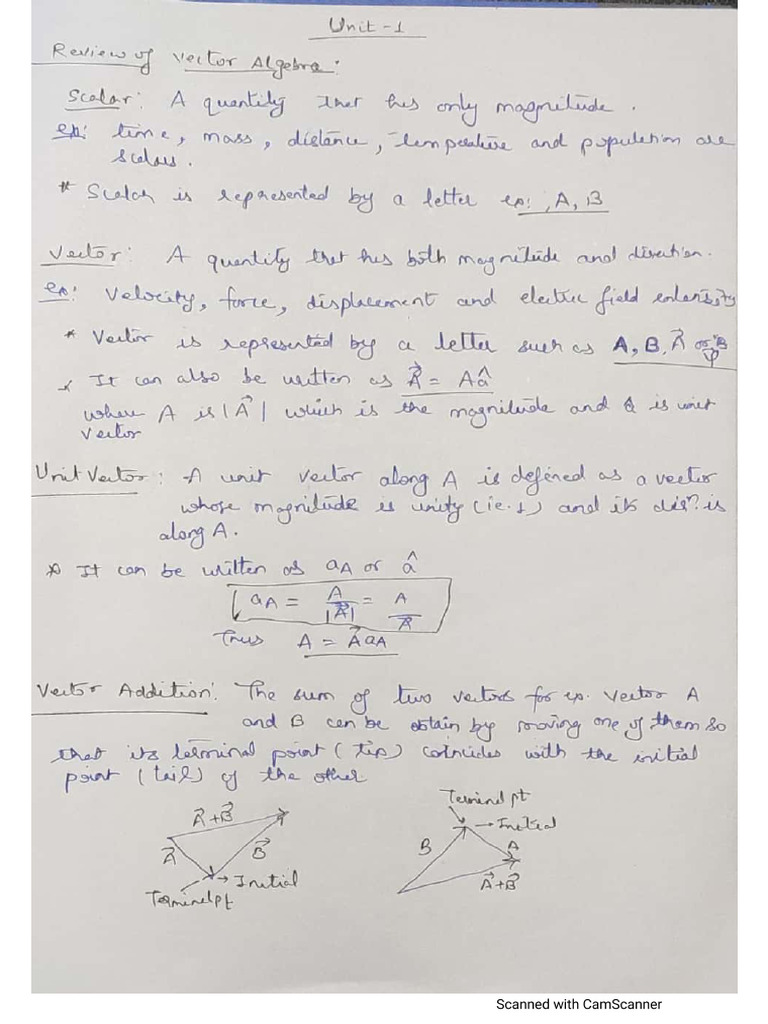 Unit-1
Review of Vector Algebra:
Scalar: A quantity that has only magnitude.
ex: time, mass, distance, temperature and population are
scalars.
* Scalar is represented by a letter ex:, A, B
Vector: A quantity that has both magnitude and direction.
ex: Velocity, force, displacement and electric field intensity
* Vector is represented by a letter such as A, B, A⃗ or B
* It can also be written as A⃗ = Aâ
where A is |A⃗| which is the magnitude and â is unit
vector
Unit Vector: A unit vector along A is defined as a vector
whose magnitude is unity (ie. 1) and its dirⁿ is
along A.
* It can be written as aA or â
aA = A/|A⃗| = A/A⃗
Thus A = A⃗ aA
Vector Addition: The sum of two vectors for ex. vector A
and B can be obtain by moving one of them so
that its terminal point (tip) coincides with the initial
point (tail) of the other
Terminal pt
A⃗+B⃗
→ Initial
B
A
A⃗
B⃗
A⃗+B⃗
→ Initial
Terminal pt
Scanned with CamScanner